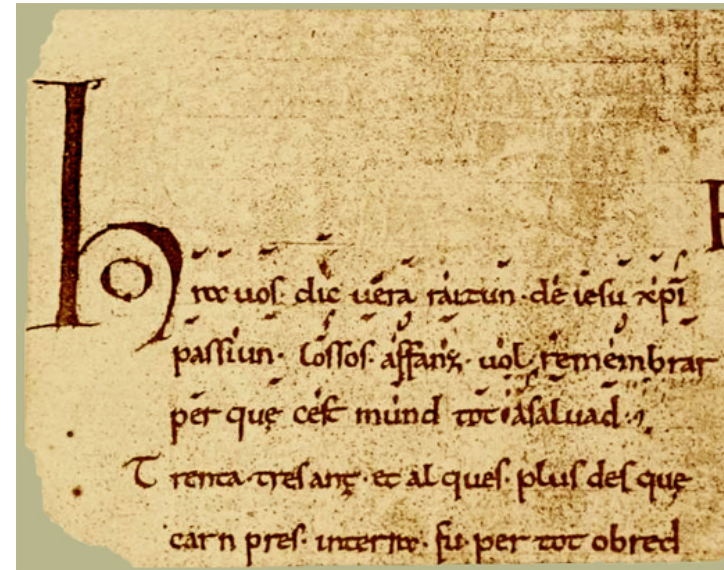 Hora vos dic vera raizun · de iesu xpi
passiun · los sos · affanz · vol remembrar
per que cest mund tot a salvad ·
Trenta · tres anz · et al ques · plus des que
carn pres · in terra · fu per tot obred